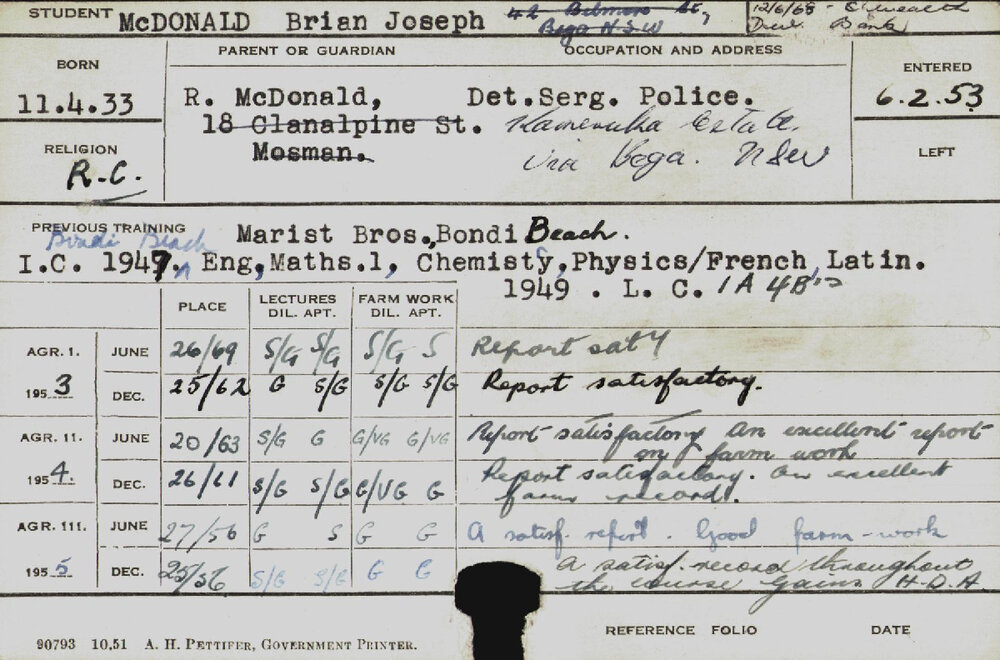 STUDENT McDONALD Brian Joseph 42 St, 12/6/68 - C'wealth
Bega N.S.W Dev. Bank
BORN PARENT OR GUARDIAN OCCUPATION AND ADDRESS ENTERED
11.4.33 R. McDonald, Det.Serg. Police. 6.2.53
18 Clanalpine St. Kameruka Estate.
RELIGION Mosman. via Bega. NSW LEFT
R.C.
PREVIOUS TRAINING Marist Bros., Bondi Beach.
Bondi Beach
I.C. 1947. Eng, Maths.1, Chemisty, Physics/French, Latin.
1949 . L. C. 1A 4B's
PLACE LECTURES FARM WORK
DIL. APT. DIL. APT.
AGR. 1. JUNE 26/69 S/G S/G S/G S Report sat'y
1953 DEC. 25/62 G S/G S/G S/G Report satisfactory.
AGR. 11. JUNE 20/63 S/G G G/VG G/VG Report satisfactory An excellent report
on farm work
1954. DEC. 26/61 S/G S/G G/VG G Report satisfactory. An excellent
farm record.
AGR. 111. JUNE 27/56 G S G G A satisf. report. Good farm-work
1955 DEC. 25/56 S/G S/G G G A satisf. record throughout
the course Gains H.D.A
REFERENCE FOLIO DATE
90793 10,51 A. H. PETTIFER, GOVERNMENT PRINTER.